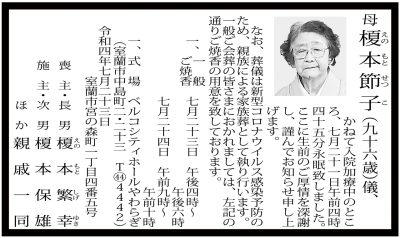 母 榎本節子(九十六歳)儀、
えの もと せつ こ
かねて入院加療中のとこ
ろ、七月二十一日午前四時
四十五分永眠致しました。
ここに生前のご厚情を深謝
し、謹んでお知らせ申し上
げます。
なお、葬儀は新型コロナウイルス感染予防の
ため、親族による家族葬として執り行います。
一般ご会葬の皆さまにおかれましては、左記の
通りご焼香の用意を致しております。
一、一般
ご焼香
七月二十三日 午後四時〜
午後六時
七月二十四日 午前九時〜
午前十時
一、式場 ベルコシティホールやわらぎ
(室蘭市中島町二-二十三 T㊹4442)
令和四年七月二十三日
室蘭市宮の森町一丁目四番五号
喪主・長男 榎本繁幸
えの もと しげ ゆき
施主・次男 榎本保雄
ほか 親戚一同